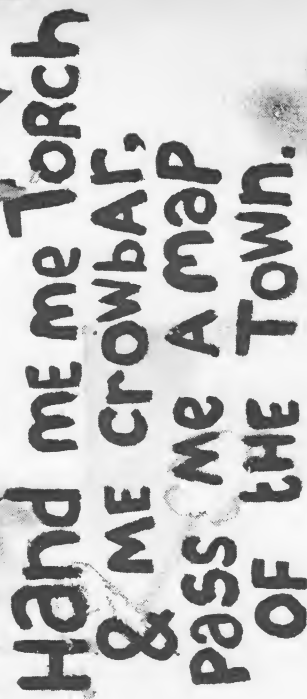 Hand mE me TorcH
& ME crowbAr,
pass Me A map
OF tHE Town.